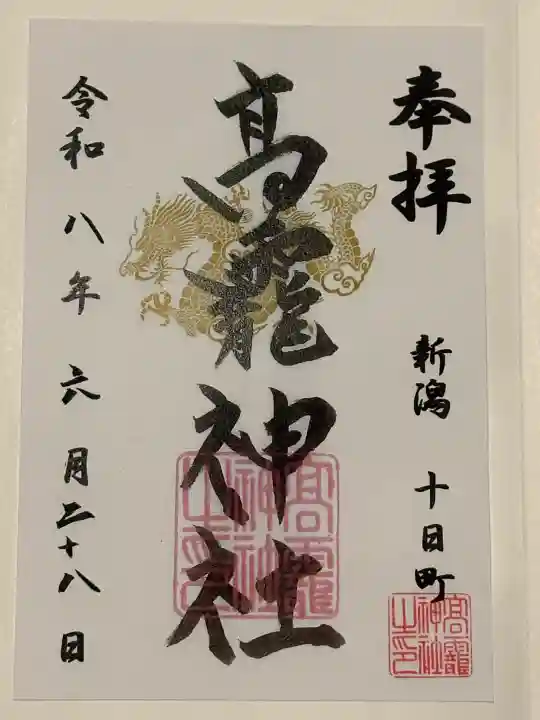 奉拝
新潟 十日町
高龗神社
令和 八年 六月二十八日
高龗
神社
之印
高龗
神社
之印